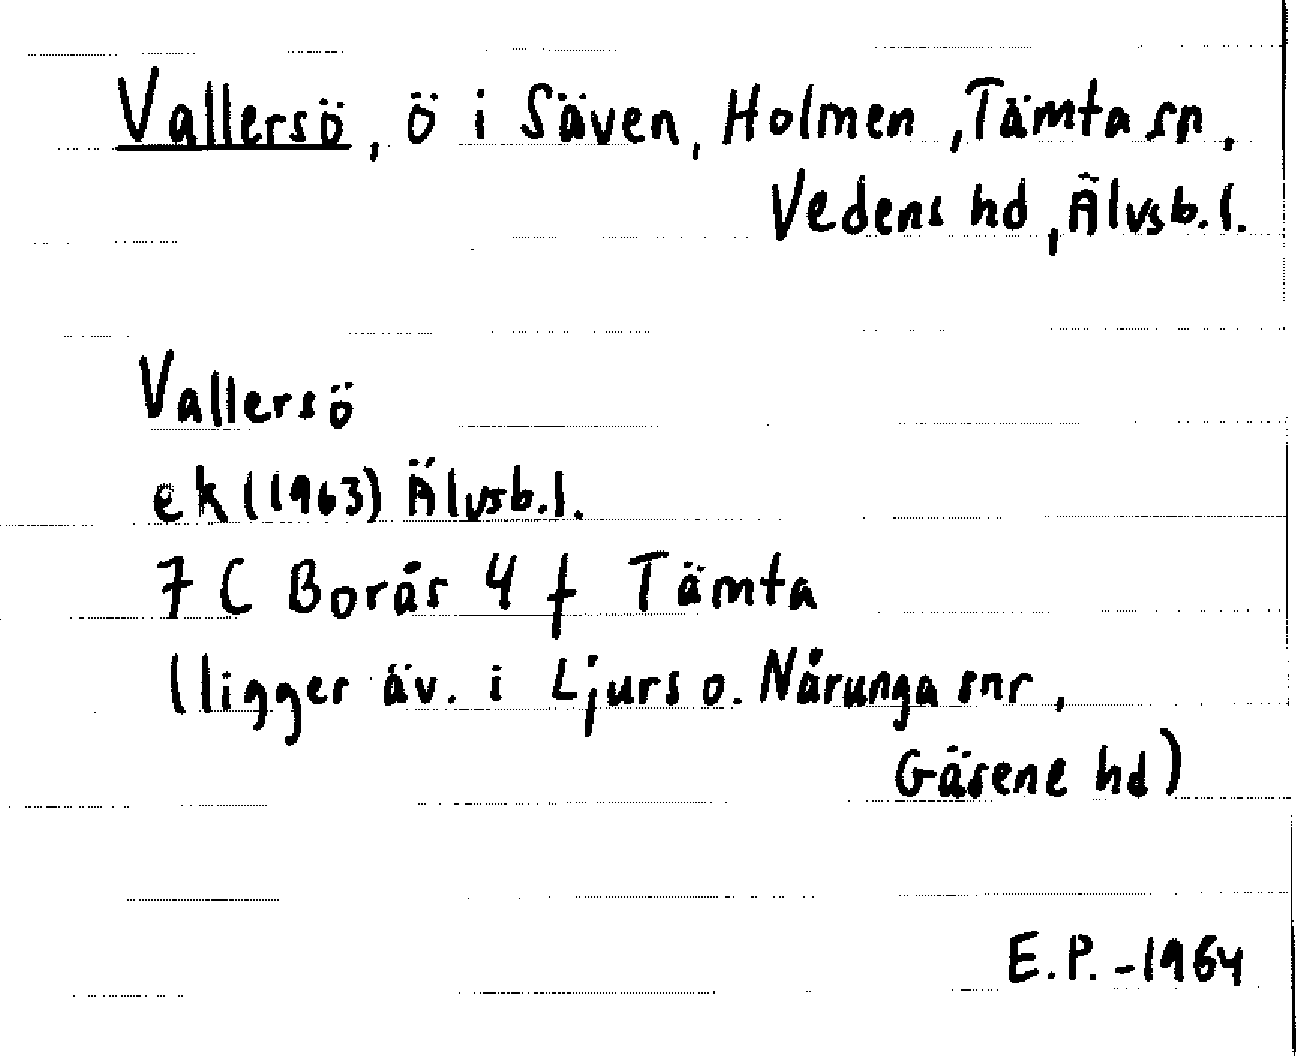 Vallersö, ö i Säven, Holmen, Tämta sn,
Vedens hd, Älvsb.l.
Vallersö
ek (1963) Älvsb.l.
7 C Borås 4 f Tämta
(ligger äv. i Ljurs o. Nårunga snr,
Gäsene hd)
E.P. -1964